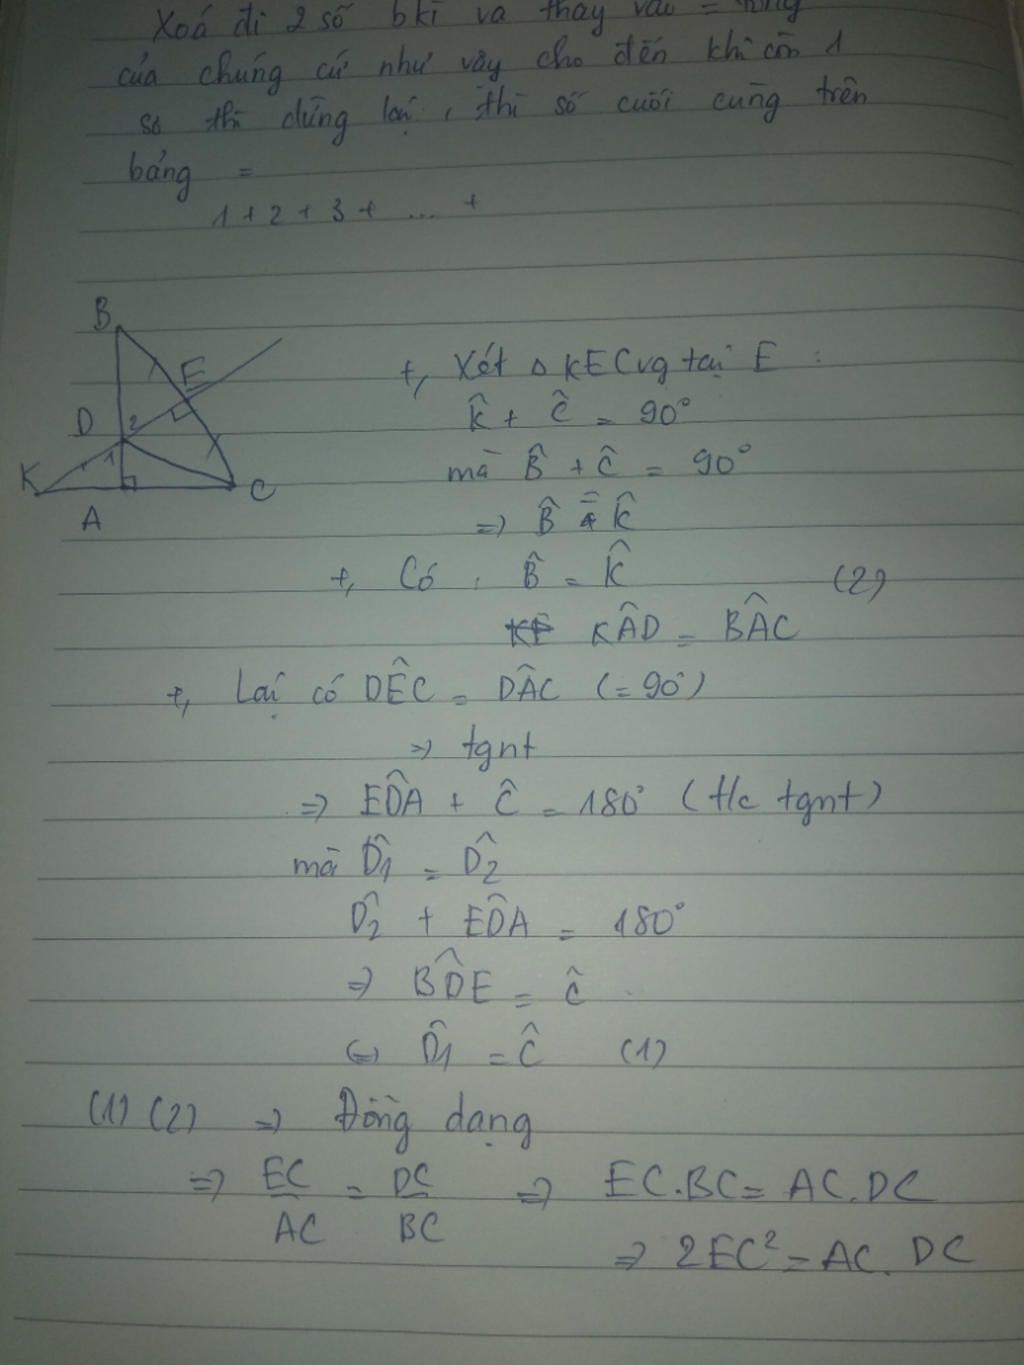 Xoá đi 2 số bkì và thay vào = tổng
của chúng cứ như vậy cho đến khi còn 1
số thì dừng lại, thì số cuối cùng trên
bảng =
1 + 2 + 3 + ... +
B
E
D 2
1
K
C
A
+, Xét Δ KEC vg tại E :
K̂ + Ĉ = 90°
mà B̂ + Ĉ = 90°
=> B̂ = K̂
+, Có : B̂ = K̂ (2)
KÂD = BÂC
+, Lại có DÊC = DÂC (= 90°)
=> tgnt
=> ED̂A + Ĉ = 180° (t/c tgnt)
mà D̂1 = D̂2
D̂2 + ED̂A = 180°
=> BD̂E = Ĉ
<=> D̂1 = Ĉ (1)
(1) (2) => Đồng dạng
=> EC/AC = DC/BC => EC.BC = AC.DC
=> 2EC² = AC. DC